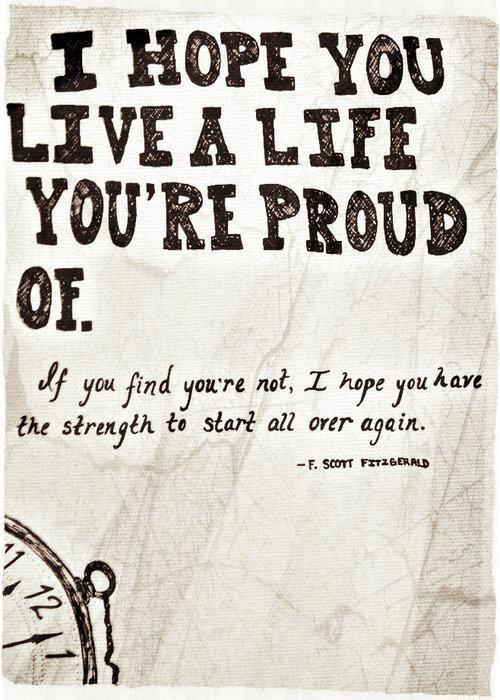 I HOPE YOU
LIVE A LIFE
YOU'RE PROUD
OF.
If you find you're not, I hope you have
the strength to start all over again.
-F. SCOTT FITZGERALD
11
12
1